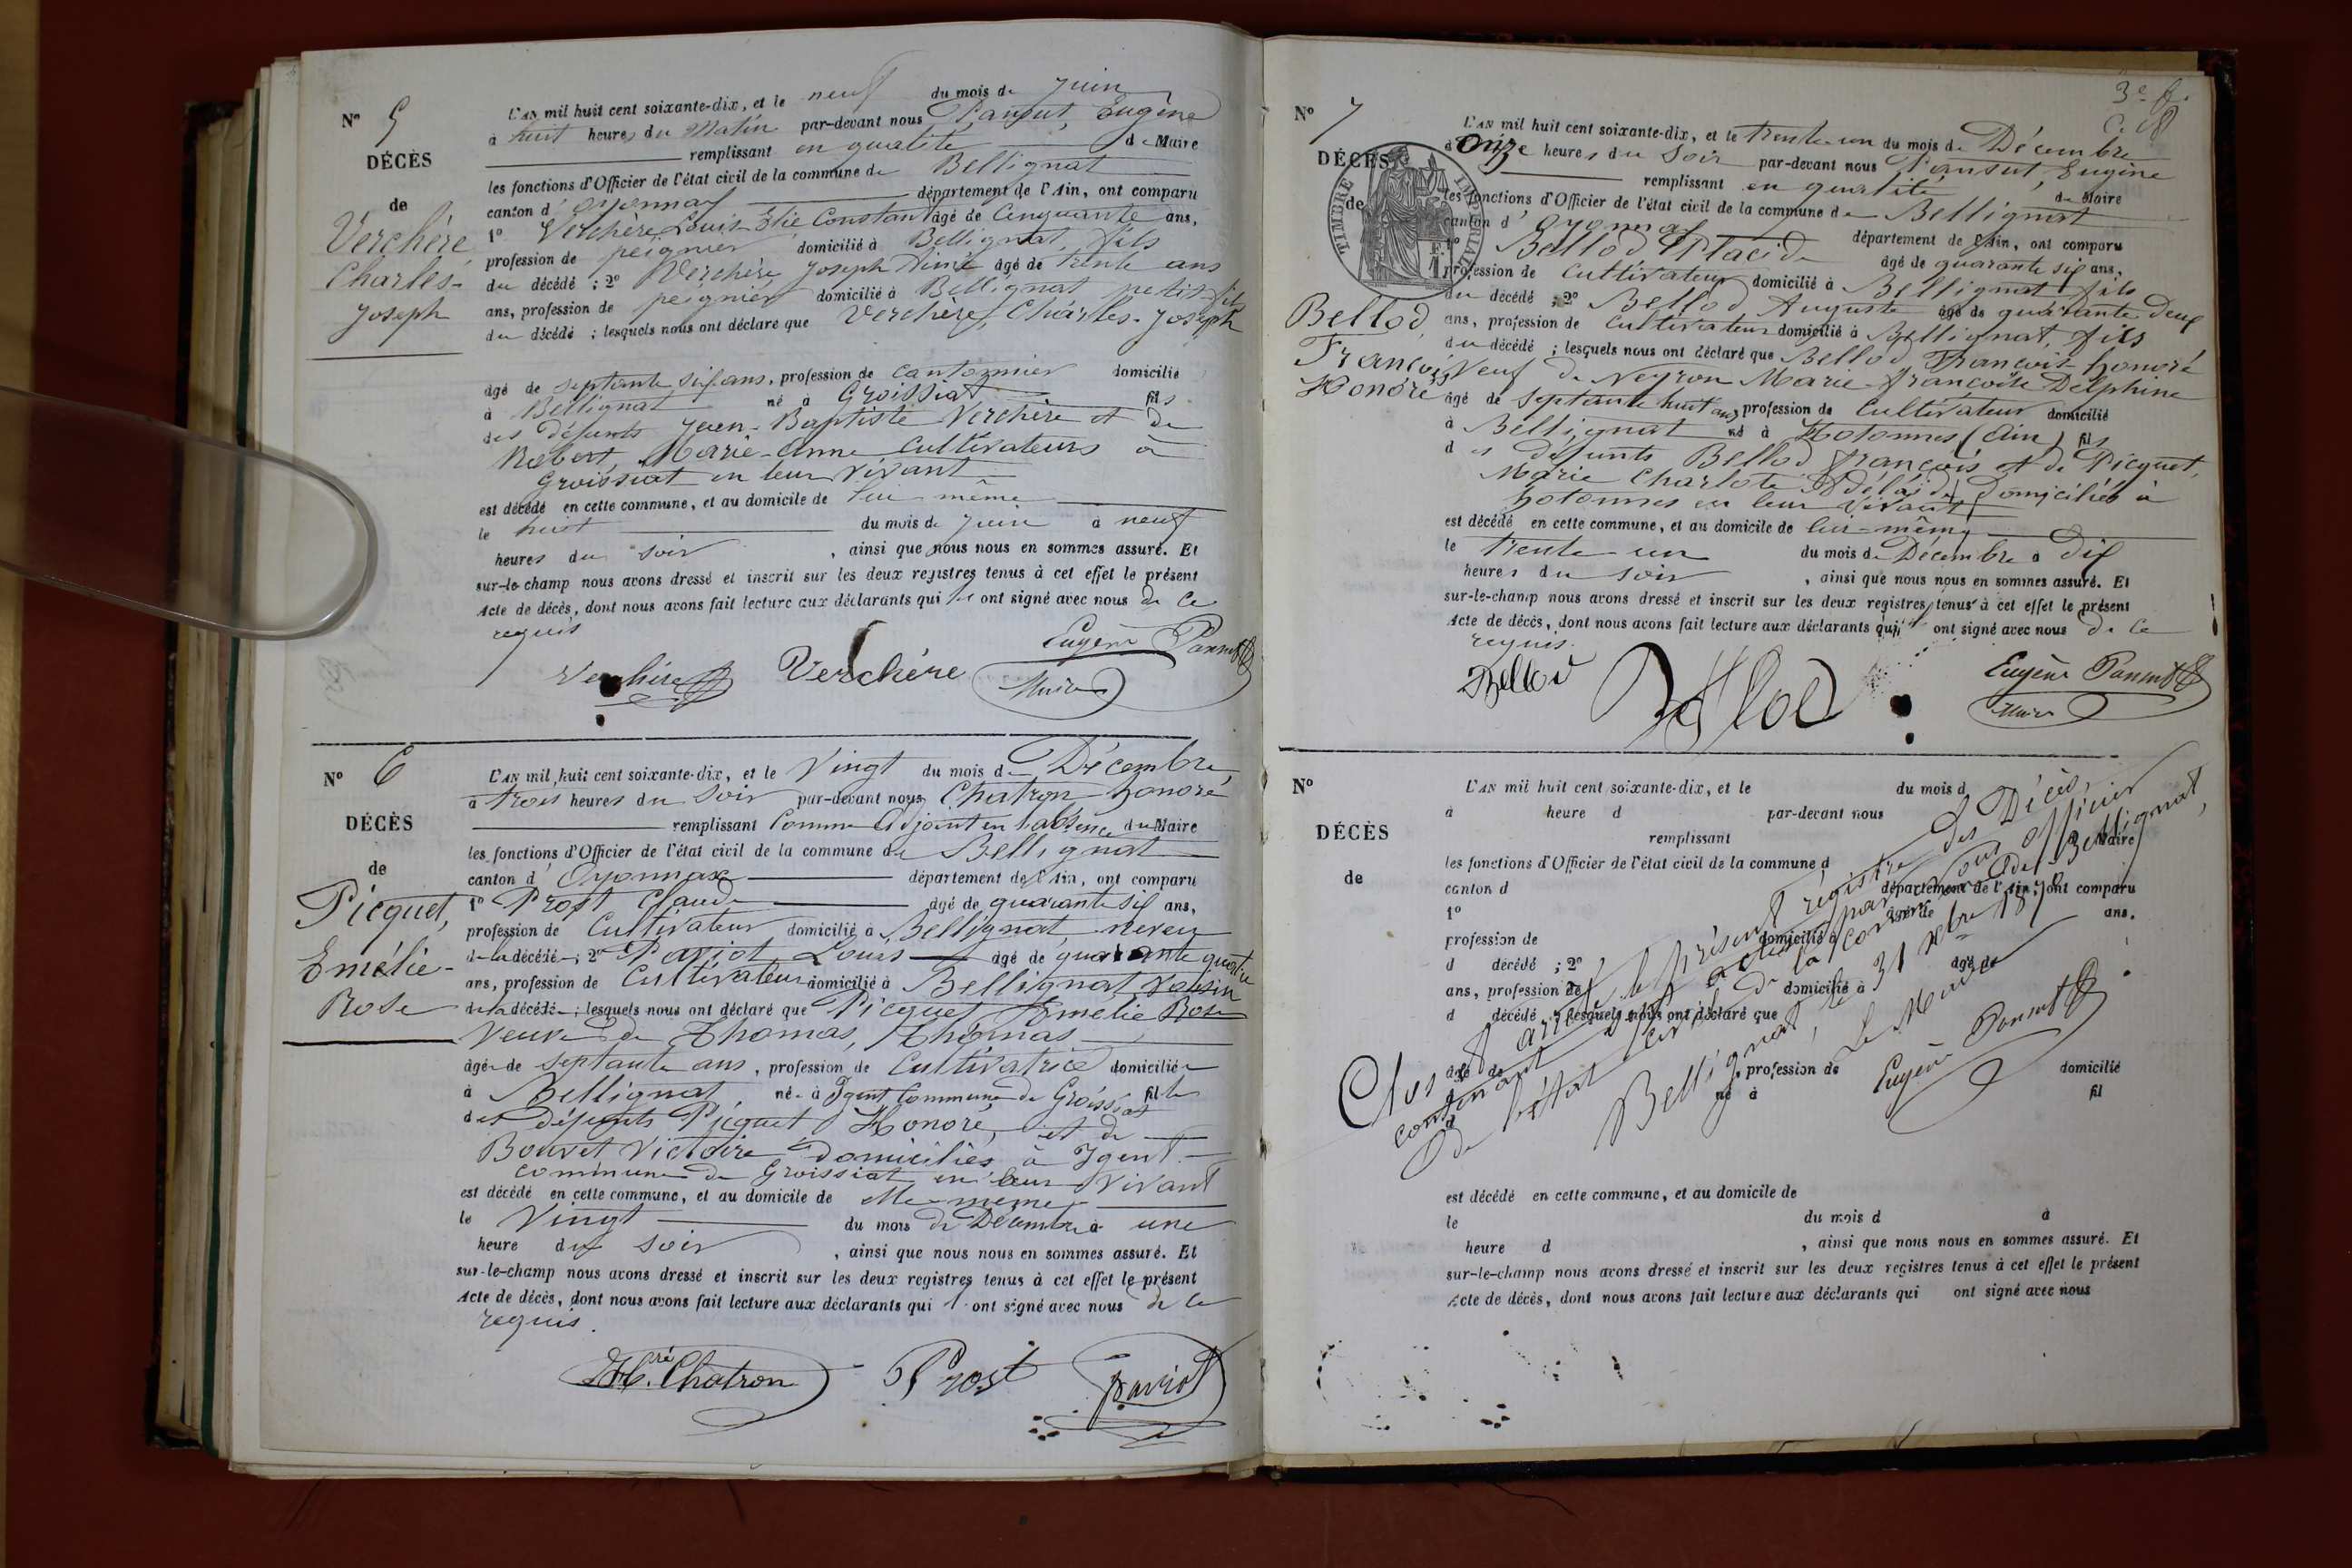 N° 5
DÉCÈS
de
Verchère
Charles-
Joseph
L'AN mil huit cent soixante-dix, et le neuf du mois de Juin
à huit heures du Matin par-devant nous Pansut, Eugène
remplissant en qualité de Maire
les fonctions d'Officier de l'état civil de la commune de Bellignat
canton d'Oyonnax département de l'Ain, ont comparu
1° Verchère Louis Elie Constant âgé de Cinquante ans,
profession de peignier domicilié à Bellignat, fils
du décédé ; 2° Verchère Joseph Aimé âgé de trente ans
ans, profession de peignier domicilié à Bellignat petit-fils
du décédé ; lesquels nous ont déclaré que Verchère, Charles-Joseph
âgé de septante six ans, profession de cantonnier domicilié
à Bellignat né à Groissiat fils
des défunts Jean-Baptiste Verchère et de
Robert, Marie-Anne Cultivateurs à
Groissiat en leur vivant
est décédé en cette commune, et au domicile de lui même
le huit du mois de Juin à neuf
heures du soir , ainsi que nous nous en sommes assuré. Et
sur-le champ nous avons dressé et inscrit sur les deux registres tenus à cet effet le présent
Acte de décès, dont nous avons fait lecture aux déclarants qui ont signé avec nous de ce
requis
Verchère Verchère Eugène Pansut
Maire
N° 6
DÉCÈS
de
Picquet,
Emélie-
Rose
L'AN mil huit cent soixante-dix, et le Vingt du mois de Décembre
à trois heures du Soir par-devant nous Chatron honoré
remplissant Comme Adjoint en l'absence du Maire
les fonctions d'Officier de l'état civil de la commune de Bellignat
canton d'Oyonnax département de l'Ain, ont comparu
1° Prost Claude âgé de quarante six ans,
profession de Cultivateur domicilié à Bellignat, neveu
de la décédée ; 2° Paviot Louis âgé de quarante quatre
ans, profession de Cultivateur domicilié à Bellignat Voisin
de la décédée ; lesquels nous ont déclaré que Picquet Emélie Rose
Veuve de Thomas, Thomas
âgée de septante ans, profession de Cultivatrice domiciliée
à Bellignat, née à Igent Commune de Groissiat fille
des défunts Picquet Honoré, et de
Bouvet Victoire Domiciliés à Igent
commune de Groissiat en leur Vivant
est décédé en cette commune, et au domicile de elle-même
le Vingt du mois de Décembre à une
heure du Soir , ainsi que nous nous en sommes assuré. Et
sur-le-champ nous avons dressé et inscrit sur les deux registres tenus à cet effet le présent
Acte de décès, dont nous avons fait lecture aux déclarants qui ont signé avec nous de ce
requis.
Hré. Chatron Prost Paviot
3e f.
N° 7
DÉCÈS
de
TIMBRE IMPÉRIAL
1 F.
Bellod
François
Honoré
L'AN mil huit cent soixante-dix, et le trente-un du mois de Décembre
à Onze heures du Soir par-devant nous Pansut, Eugène
remplissant en qualité de Maire
les fonctions d'Officier de l'état civil de la commune de Bellignat
canton d'Oyonnax département de l'Ain, ont comparu
1° Bellod Placide âgé de quarante six ans,
profession de Cultivateur domicilié à Bellignat fils
du décédé ; 2° Bellod Auguste âgé de quarante deux
ans, profession de Cultivateur domicilié à Bellignat, fils
du décédé ; lesquels nous ont déclaré que Bellod François-honoré
Veuf de Neyron Marie-françoise Delphine
âgé de septante huit ans, profession de Cultivateur domicilié
à Bellignat né à Hotonnes (Ain) fils
des défunts Bellod françois et de Picquet,
Marie Charlote Adélaïde Domiciliés à
hotonnes en leur Vivant
est décédé en cette commune, et au domicile de lui-même
le trente-un du mois de Décembre à dix
heures du soir , ainsi que nous nous en sommes assuré. Et
sur-le-champ nous avons dressé et inscrit sur les deux registres tenus à cet effet le présent
Acte de décès, dont nous avons fait lecture aux déclarants qui ont signé avec nous de ce
requis.
Bellod Bellod Eugène Pansut
Maire
N°
DÉCÈS
de
L'AN mil huit cent soixante-dix, et le du mois d
à heure d par-devant nous
remplissant Maire
les fonctions d'Officier de l'état civil de la commune d
canton d département de l'Ain, ont comparu
1° âgé de ans.
profession de domicilié à
d décédé ; 2° âgé de
ans, profession de domicilié à
d décédé ; lesquels nous ont déclaré que
âgé de profession de domicilié
à né à fil
d
Clos et arrêté le présent régistre des Décès,
contenant sept actes par nous officier
de l'état civil de la commune de Bellignat,
Bellignat, le 31 Xbre 1870
Le Maire
Eugène Pansut
est décédé en cette commune, et au domicile de
le du mois d à
heure d , ainsi que nous nous en sommes assuré. Et
sur-le-champ nous avons dressé et inscrit sur les deux registres tenus à cet effet le présent
Acte de décès, dont nous avons fait lecture aux déclarants qui ont signé avec nous